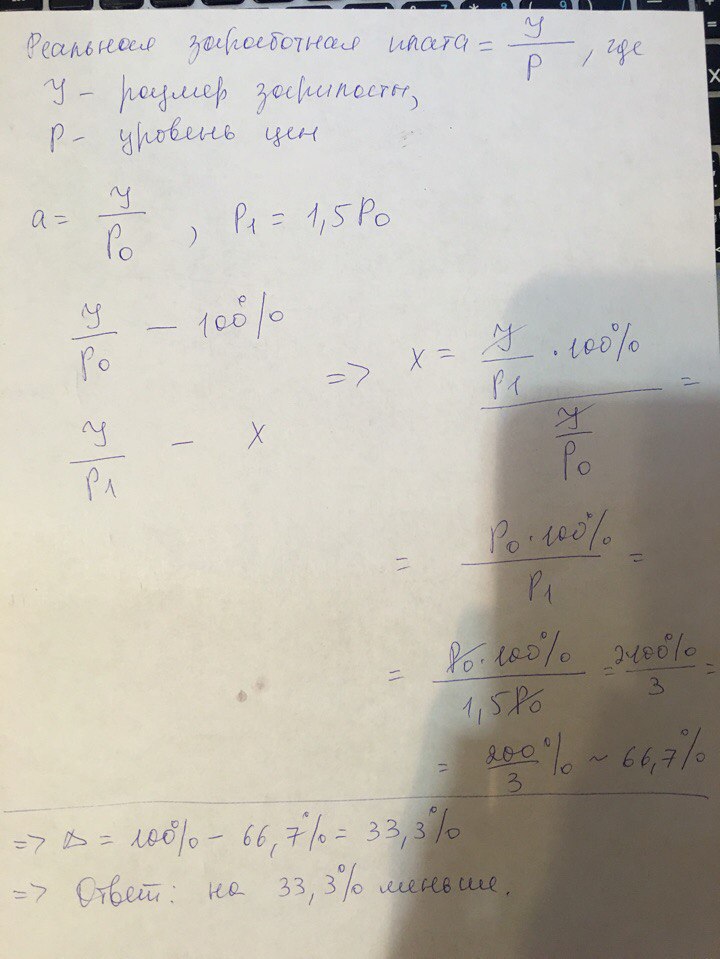 Реальная заработная плата = У/Р, где
У - размер зарплаты,
Р - уровень цен
a = У/P₀, P₁ = 1,5P₀
У/P₀ — 100%
У/P₁ — x
=> x = (У/P₁ · 100%)/(У/P₀) =
= (P₀ · 100%)/P₁ =
= (P₀ · 100%)/(1,5P₀) = (2·100%)/3 =
= 200/3 % ~ 66,7%
=> Δ = 100% - 66,7% = 33,3%
=> Ответ: на 33,3% меньше.